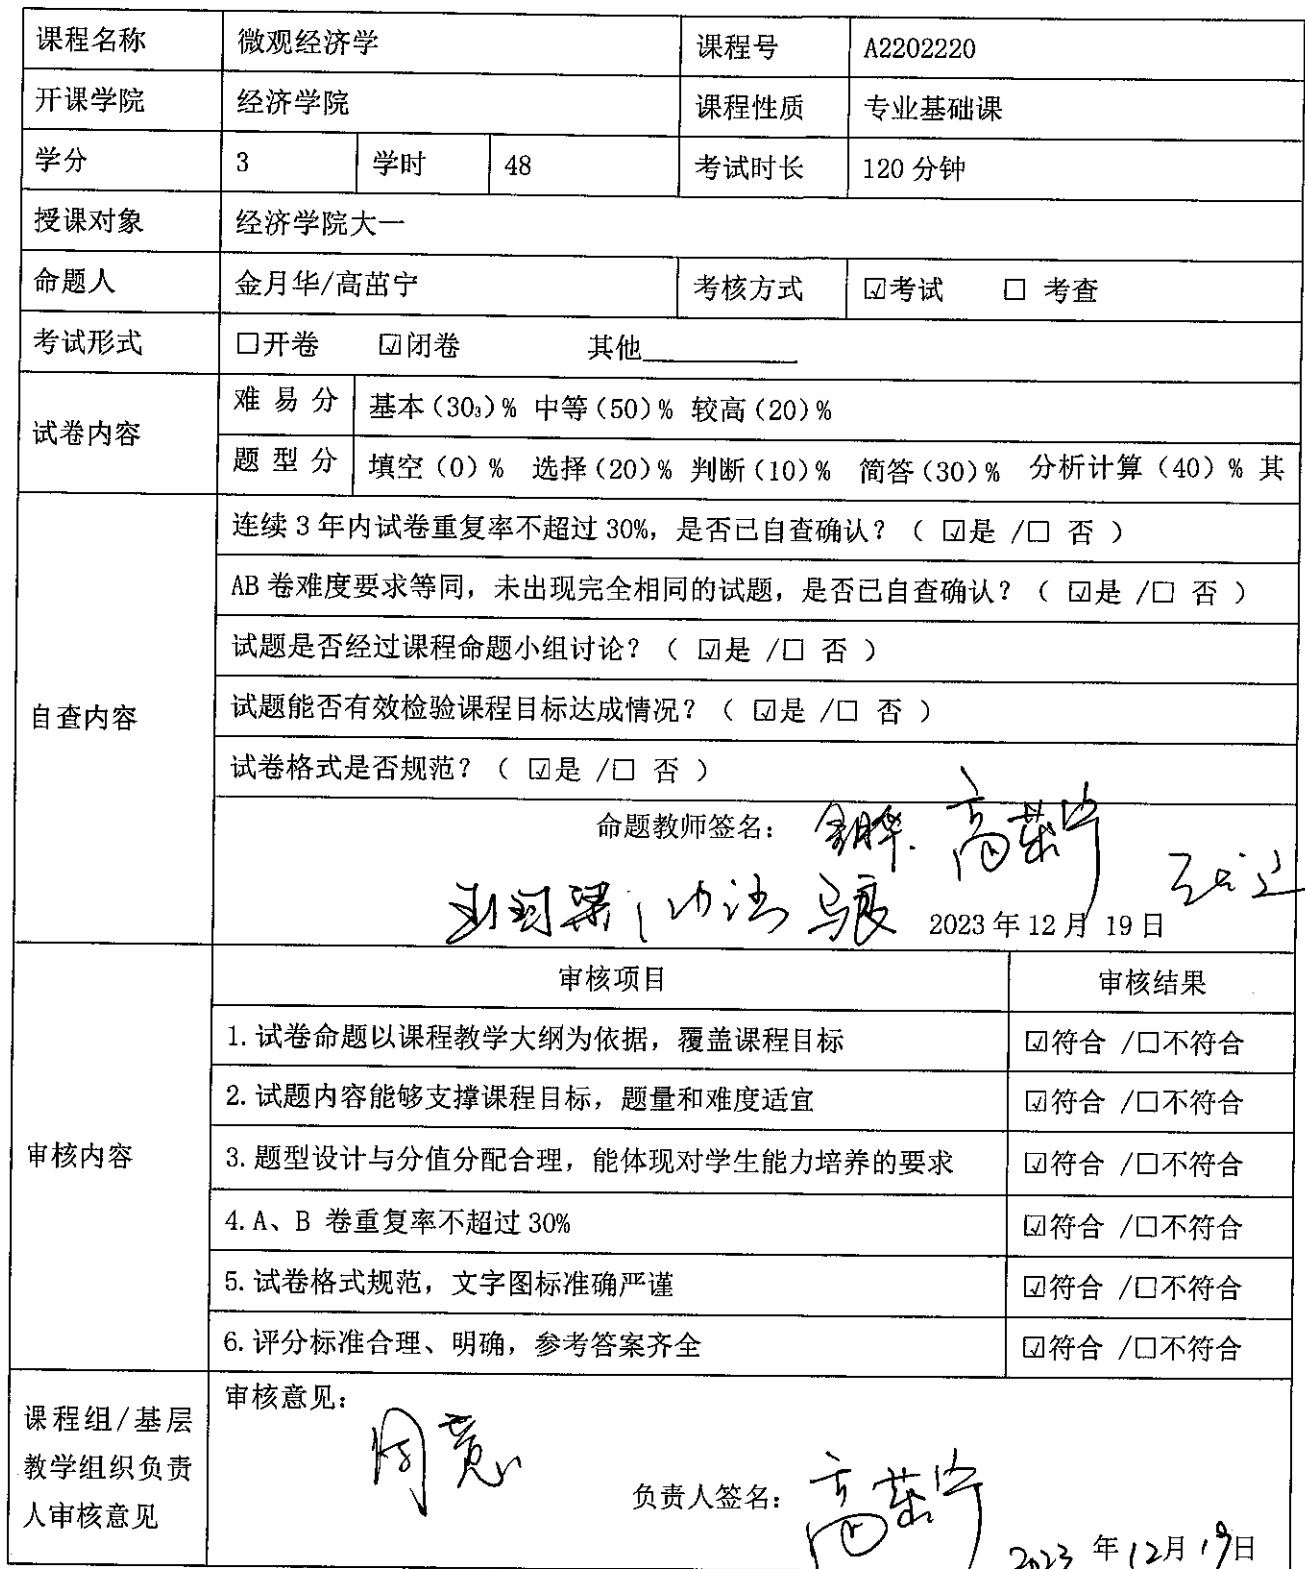 课程名称 微观经济学 课程号 A2202220
开课学院 经济学院 课程性质 专业基础课
学分 3 学时 48 考试时长 120 分钟
授课对象 经济学院大一
命题人 金月华/高茁宁 考核方式 ☑考试 □ 考查
考试形式 □开卷 ☑闭卷 其他
试卷内容
难 易 分 基本(30₃)% 中等(50)% 较高(20)%
题 型 分 填空(0)% 选择(20)% 判断(10)% 简答(30)% 分析计算(40)% 其
自查内容
连续 3 年内试卷重复率不超过 30%，是否已自查确认？（ ☑是 /□ 否 ）
AB 卷难度要求等同，未出现完全相同的试题，是否已自查确认？（ ☑是 /□ 否 ）
试题是否经过课程命题小组讨论？（ ☑是 /□ 否 ）
试题能否有效检验课程目标达成情况？（ ☑是 /□ 否 ）
试卷格式是否规范？（ ☑是 /□ 否 ）
命题教师签名： 金月华 高茁宁
2023 年 12 月 19 日
审核内容
审核项目 审核结果
1. 试卷命题以课程教学大纲为依据，覆盖课程目标 ☑符合 /□不符合
2. 试题内容能够支撑课程目标，题量和难度适宜 ☑符合 /□不符合
3. 题型设计与分值分配合理，能体现对学生能力培养的要求 ☑符合 /□不符合
4. A、B 卷重复率不超过 30% ☑符合 /□不符合
5. 试卷格式规范，文字图标准确严谨 ☑符合 /□不符合
6. 评分标准合理、明确，参考答案齐全 ☑符合 /□不符合
课程组/基层
教学组织负责
人审核意见
审核意见：
同意
负责人签名： 高茁宁
2023 年 12 月 19 日